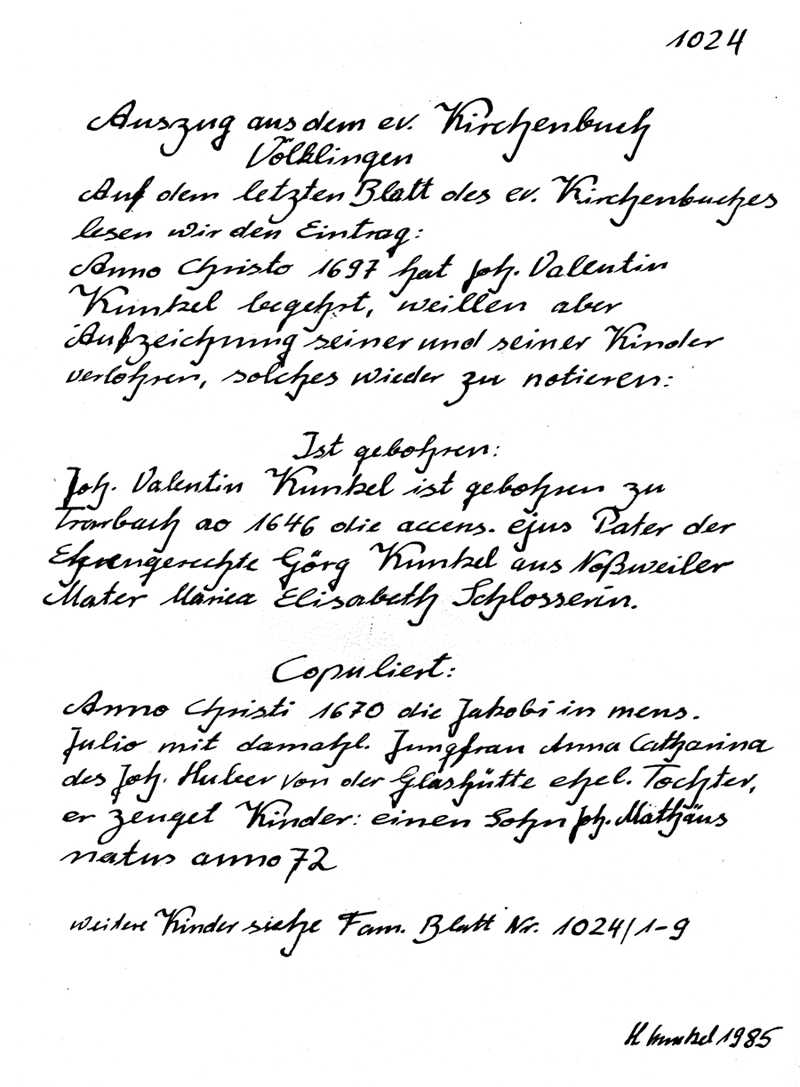 1024
Auszug aus dem ev. Kirchenbuch
Völklingen
Auf dem letzten Blatt des ev. Kirchenbuches
lesen wir den Eintrag:
Anno Christo 1697 hat Joh. Valentin
Kunkel begehrt, weillen aber
Aufzeichnung seiner und seiner Kinder
verlohren, solches wieder zu notieren:
Ist gebohren:
Joh. Valentin Kunkel ist gebohren zu
Trarbach ao 1646 die accens. ejus Pater der
Ehrengerechte Görg Kunkel aus Noßweiler
Mater Maria Elisabeth Schlosserin.
Copuliert:
Anno Christi 1670 die Jakobi in mens.
Julio mit damahl. Jungfrau Anna Catharina
des Joh. von der Glashütte ehel. Tochter,
er zeuget Kinder: einen Sohn Joh. Mathäus
natus anno 72
weitere Kinder siehe Fam. Blatt Nr. 1024/1-9
H Kunkel 1985